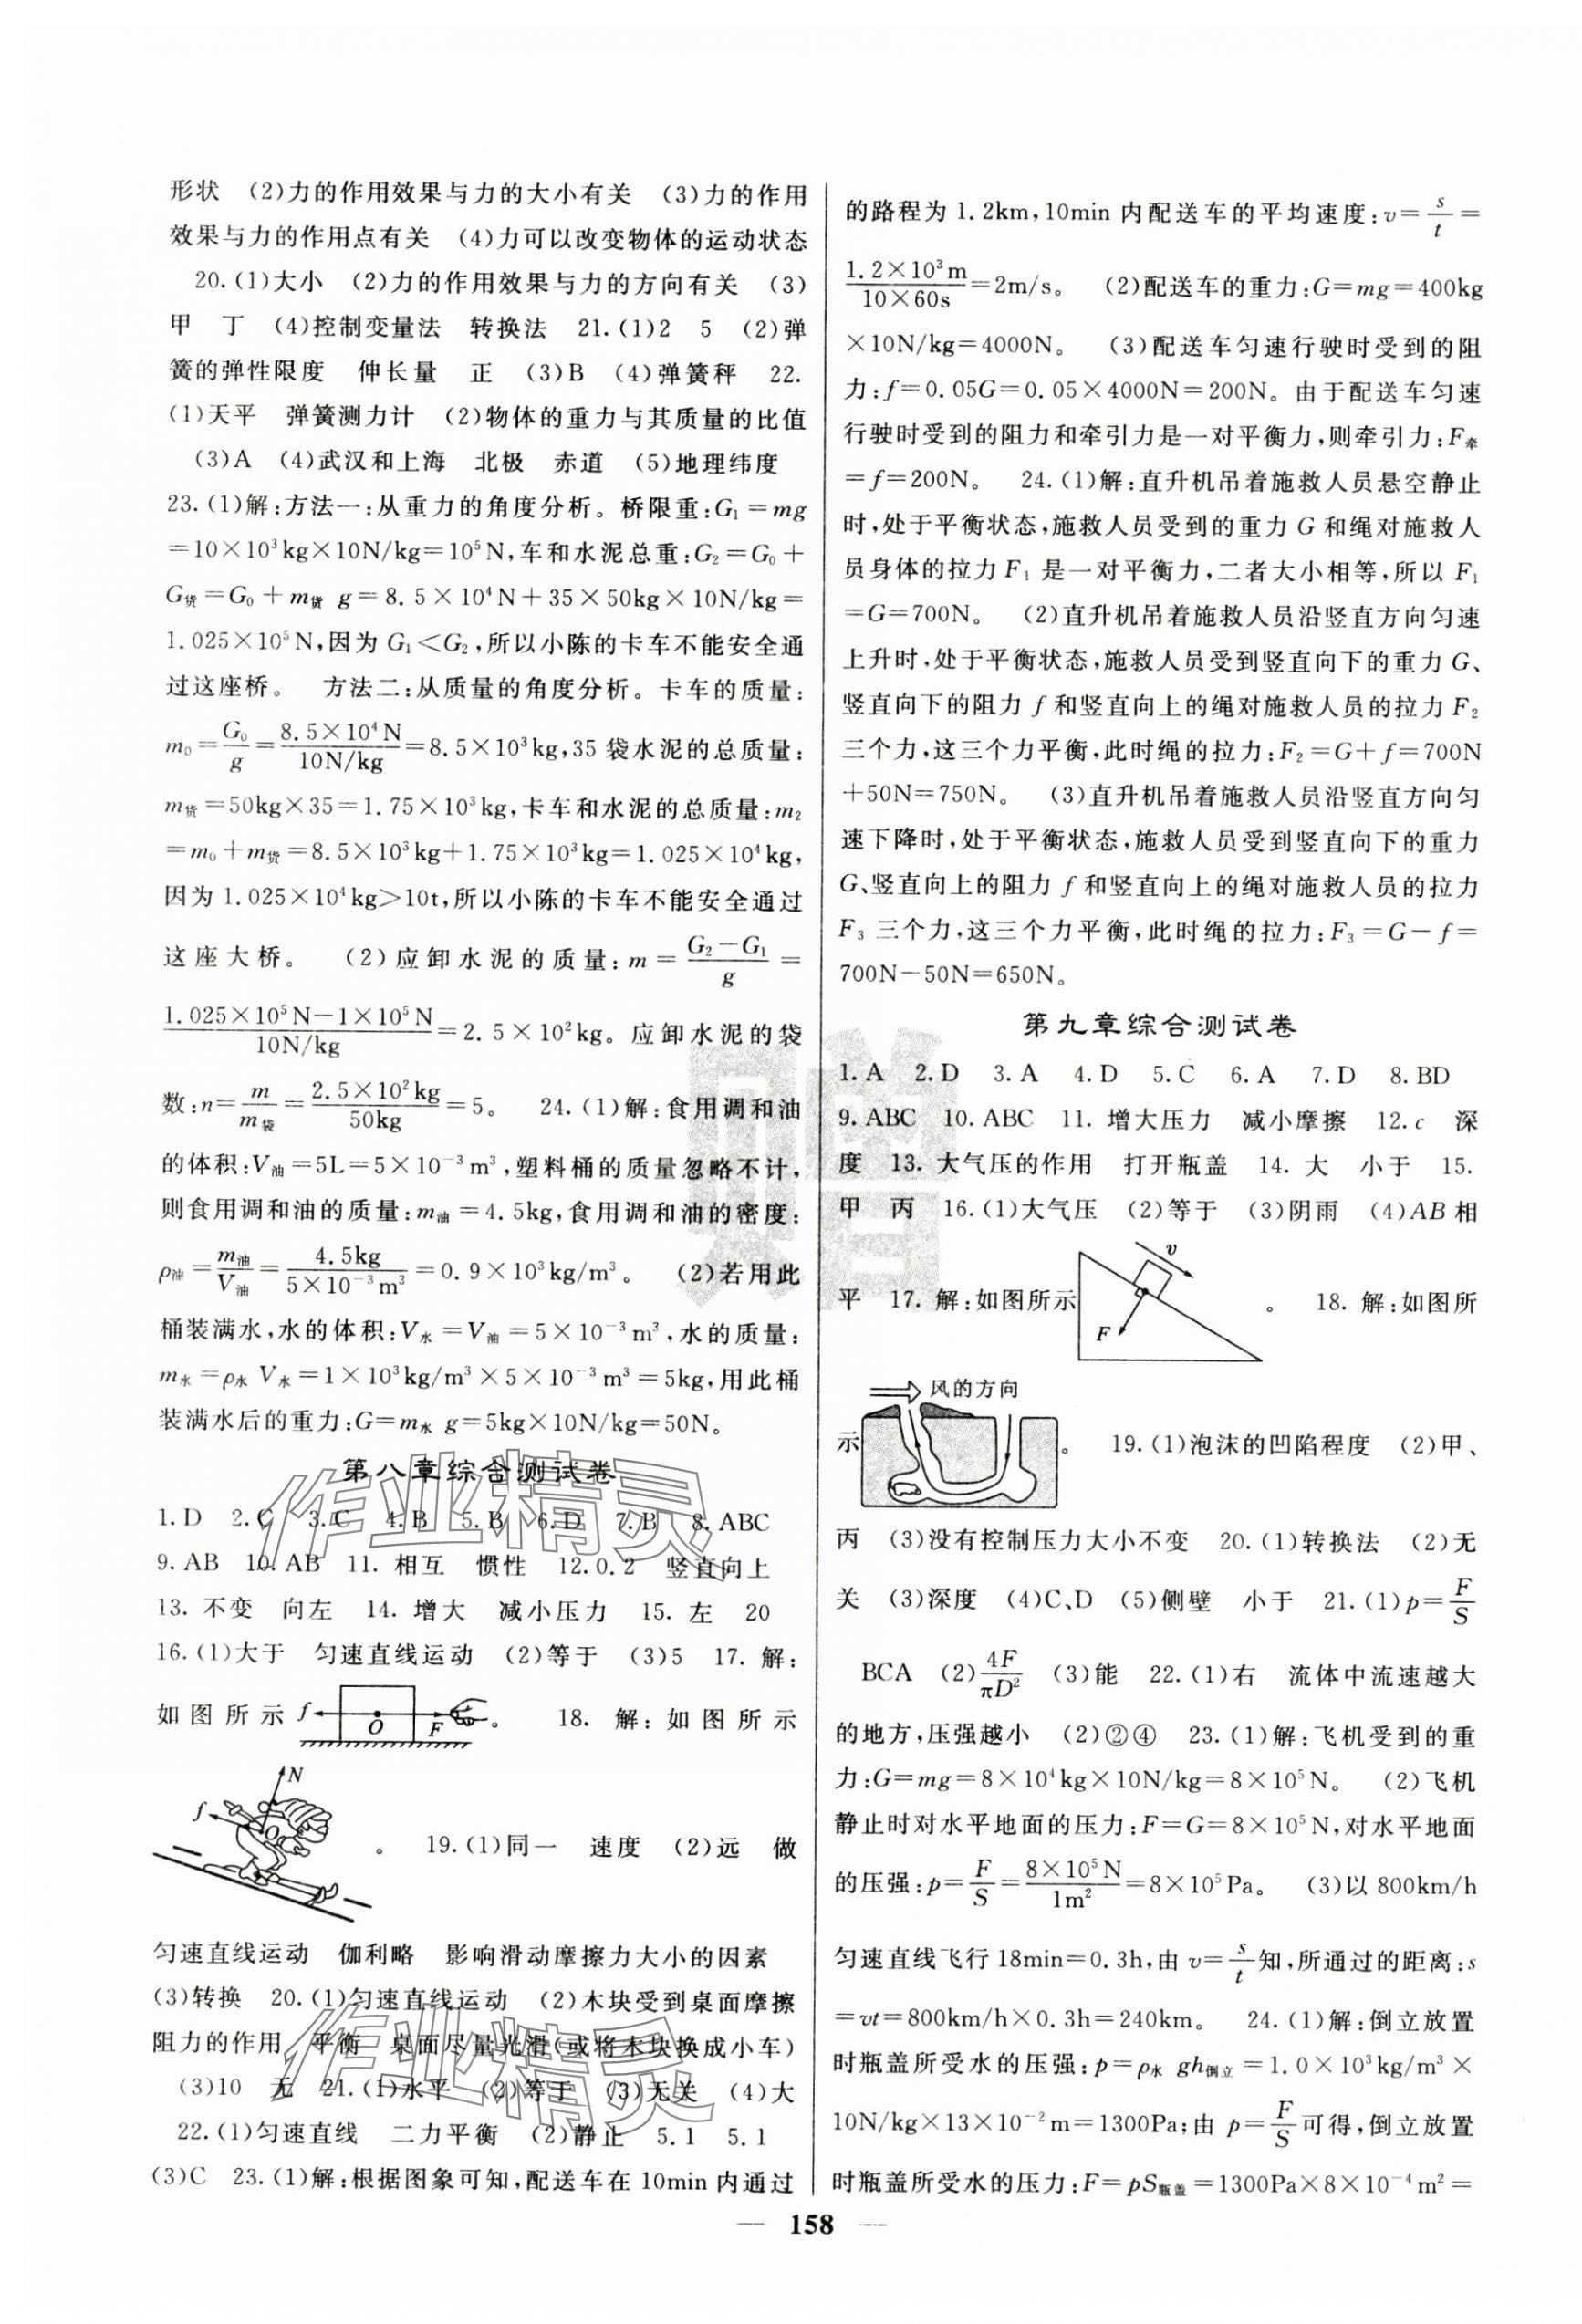 形状 (2)力的作用效果与力的大小有关 (3)力的作用
效果与力的作用点有关 (4)力可以改变物体的运动状态
20.(1)大小 (2)力的作用效果与力的方向有关 (3)
甲 丁 (4)控制变量法 转换法 21.(1)2 5 (2)弹
簧的弹性限度 伸长量 正 (3)B (4)弹簧秤 22.
(1)天平 弹簧测力计 (2)物体的重力与其质量的比值
(3)A (4)武汉和上海 北极 赤道 (5)地理纬度
23.(1)解:方法一:从重力的角度分析。桥限重:G₁=mg
=10×10³kg×10N/kg=10⁵N,车和水泥总重:G₂=G₀+
G货=G₀+m货 g=8.5×10⁴N+35×50kg×10N/kg=
1.025×10⁵N,因为 G₁<G₂,所以小陈的卡车不能安全通
过这座桥。 方法二:从质量的角度分析。卡车的质量:
m₀=G₀/g=8.5×10⁴N/10N/kg=8.5×10³kg,35 袋水泥的总质量:
m货=50kg×35=1.75×10³kg,卡车和水泥的总质量:m₂
=m₀+m货=8.5×10³kg+1.75×10³kg=1.025×10⁴kg,
因为 1.025×10⁴kg>10t,所以小陈的卡车不能安全通过
这座大桥。 (2)应卸水泥的质量:m=G₂-G₁/g=
1.025×10⁵N-1×10⁵N/10N/kg=2.5×10²kg。应卸水泥的袋
数:n=m/m袋=2.5×10²kg/50kg=5。 24.(1)解:食用调和油
的体积:V油=5L=5×10⁻³m³,塑料桶的质量忽略不计,
则食用调和油的质量:m油=4.5kg,食用调和油的密度:
ρ油=m油/V油=4.5kg/5×10⁻³m³=0.9×10³kg/m³。 (2)若用此
桶装满水,水的体积:V水=V油=5×10⁻³m³,水的质量:
m水=ρ水 V水=1×10³kg/m³×5×10⁻³m³=5kg,用此桶
装满水后的重力:G=m水 g=5kg×10N/kg=50N。
第八章综合测试卷
1.D 2.C 3.C 4.B 5.B 6.D 7.B 8.ABC
9.AB 10.AB 11. 相互 惯性 12.0.2 竖直向上
13. 不变 向左 14. 增大 减小压力 15. 左 20
16.(1)大于 匀速直线运动 (2)等于 (3)5 17. 解:
如图所示 f O F 。 18. 解:如图所示
N f O 。 19.(1)同一 速度 (2)远 做
匀速直线运动 伽利略 影响滑动摩擦力大小的因素
(3)转换 20.(1)匀速直线运动 (2)木块受到桌面摩擦
阻力的作用 平衡 桌面尽量光滑(或将木块换成小车)
(3)10 无 21.(1)水平 (2)等于 (3)无关 (4)大
22.(1)匀速直线 二力平衡 (2)静止 5.1 5.1
(3)C 23.(1)解:根据图象可知,配送车在 10min 内通过
的路程为 1.2km,10min 内配送车的平均速度:v=s/t=
1.2×10³m/10×60s=2m/s。 (2)配送车的重力:G=mg=400kg
×10N/kg=4000N。 (3)配送车匀速行驶时受到的阻
力:f=0.05G=0.05×4000N=200N。由于配送车匀速
行驶时受到的阻力和牵引力是一对平衡力,则牵引力:F牵
=f=200N。 24.(1)解:直升机吊着施救人员悬空静止
时,处于平衡状态,施救人员受到的重力 G 和绳对施救人
员身体的拉力 F₁ 是一对平衡力,二者大小相等,所以 F₁
=G=700N。 (2)直升机吊着施救人员沿竖直方向匀速
上升时,处于平衡状态,施救人员受到竖直向下的重力 G、
竖直向下的阻力 f 和竖直向上的绳对施救人员的拉力 F₂
三个力,这三个力平衡,此时绳的拉力:F₂=G+f=700N
+50N=750N。 (3)直升机吊着施救人员沿竖直方向匀
速下降时,处于平衡状态,施救人员受到竖直向下的重力
G、竖直向上的阻力 f 和竖直向上的绳对施救人员的拉力
F₃ 三个力,这三个力平衡,此时绳的拉力:F₃=G-f=
700N-50N=650N。
第九章综合测试卷
1.A 2.D 3.A 4.D 5.C 6.A 7.D 8.BD
9.ABC 10.ABC 11. 增大压力 减小摩擦 12.c 深
度 13. 大气压的作用 打开瓶盖 14. 大 小于 15.
甲 丙 16.(1)大气压 (2)等于 (3)阴雨 (4)AB 相
平 17. 解:如图所示 v F 。 18. 解:如图所
示 风的方向 。 19.(1)泡沫的凹陷程度 (2)甲、
丙 (3)没有控制压力大小不变 20.(1)转换法 (2)无
关 (3)深度 (4)C、D (5)侧壁 小于 21.(1)p=F/S
BCA (2)4F/πD² (3)能 22.(1)右 流体中流速越大
的地方,压强越小 (2)②④ 23.(1)解:飞机受到的重
力:G=mg=8×10⁴kg×10N/kg=8×10⁵N。 (2)飞机
静止时对水平地面的压力:F=G=8×10⁵N,对水平地面
的压强:p=F/S=8×10⁵N/1m²=8×10⁵Pa。 (3)以 800km/h
匀速直线飞行 18min=0.3h,由 v=s/t知,所通过的距离:s
=vt=800km/h×0.3h=240km。 24.(1)解:倒立放置
时瓶盖所受水的压强:p=ρ水 gh倒立=1.0×10³kg/m³×
10N/kg×13×10⁻²m=1300Pa;由 p=F/S可得,倒立放置
时瓶盖所受水的压力:F=pS瓶盖=1300Pa×8×10⁻⁴m²=
— 158 —
赠
作业精灵
作业精灵